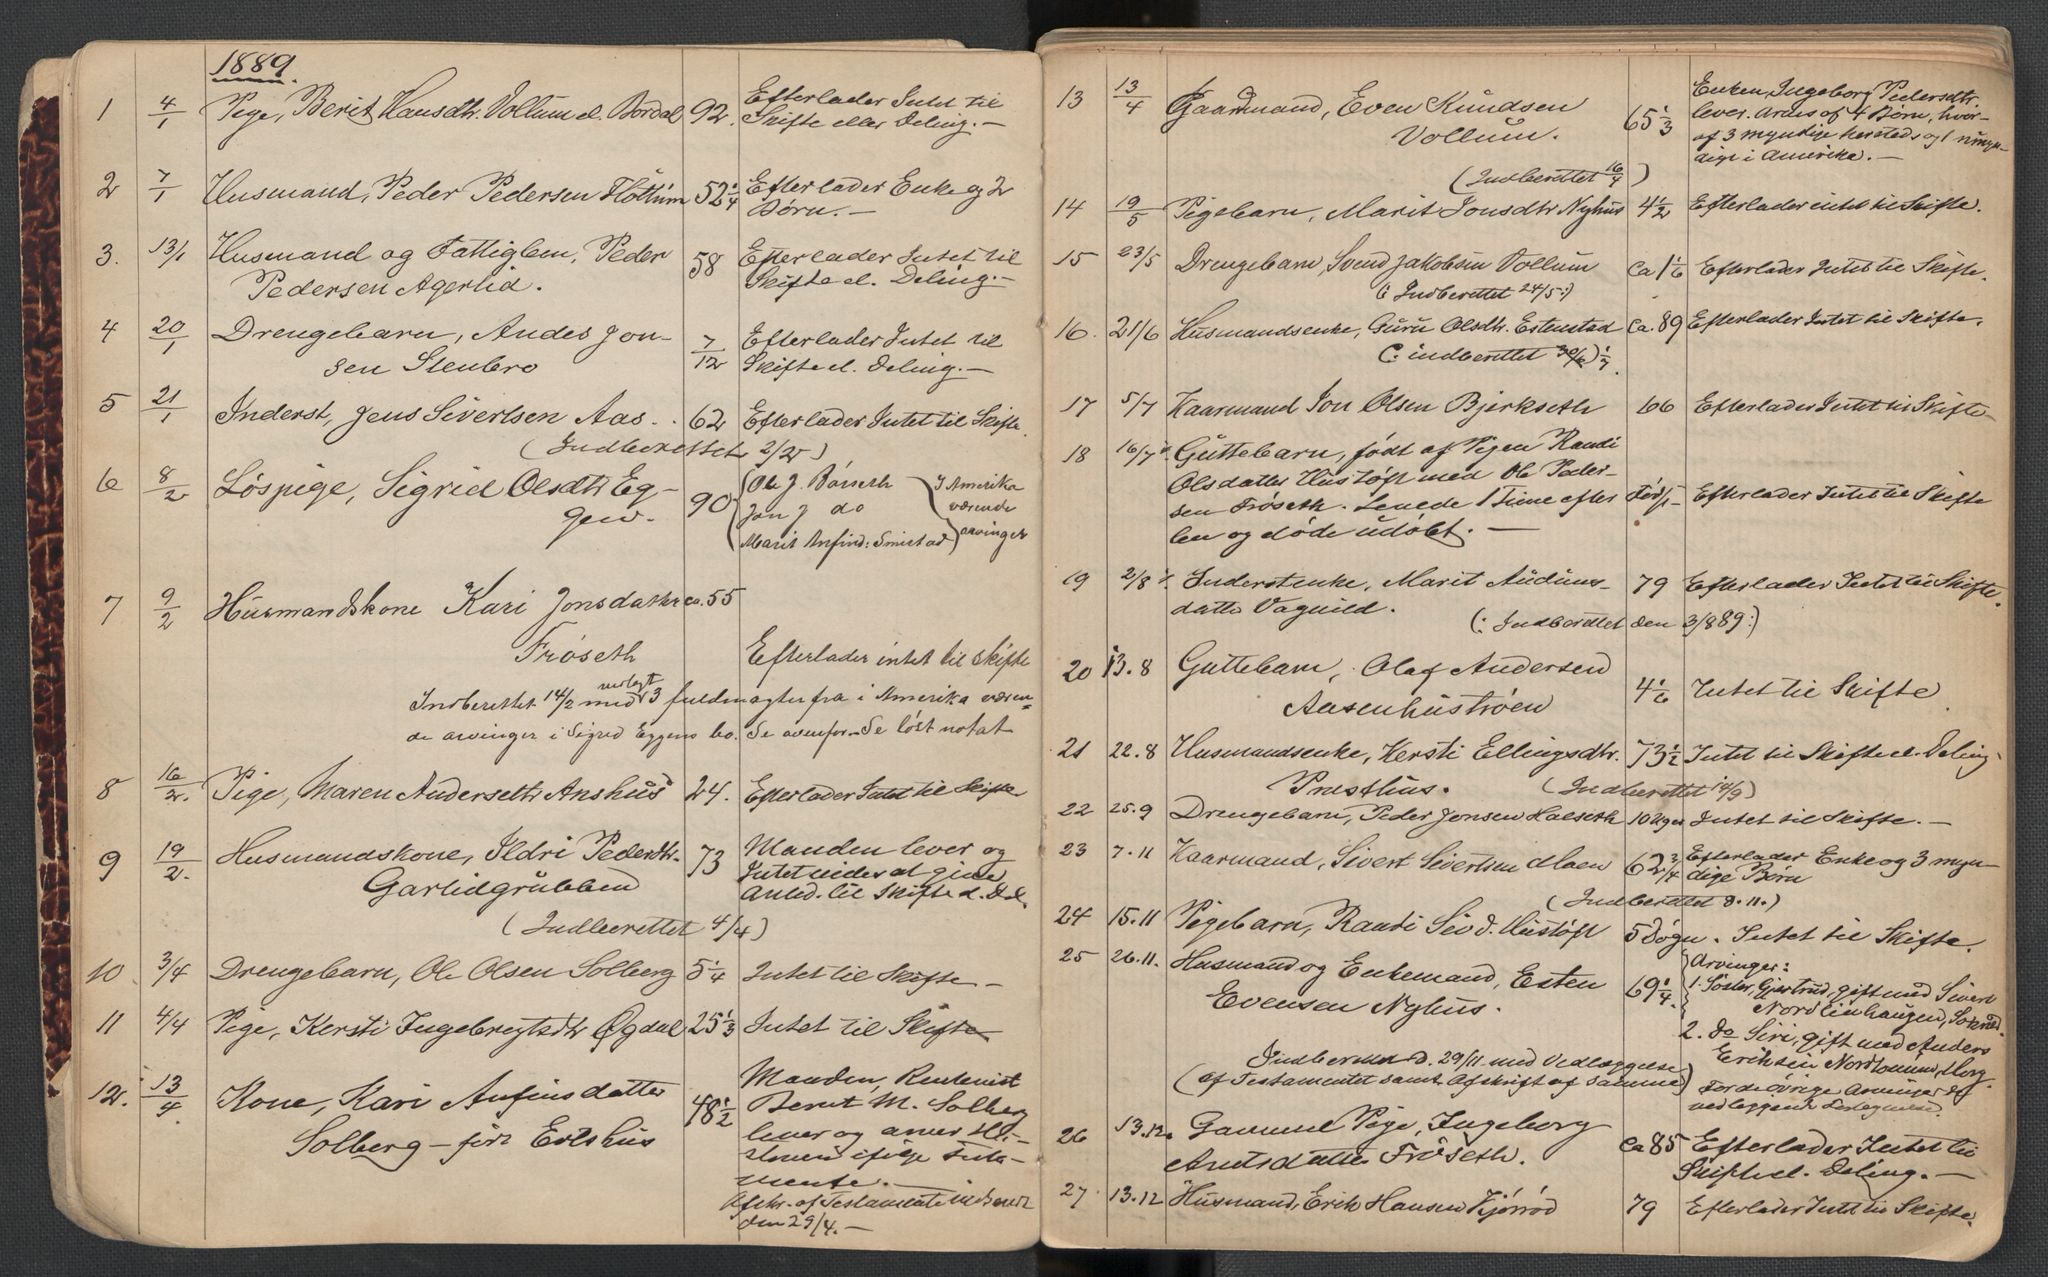 1889.
1 4/1 Pige, Berit Hansdtr. Vollum el. Bordal 92. Efterlader Intet til
Skifte eller Deling. —
2 7/1 Husmand, Peder Pedersen Fløttum 52 1/4 Efterlader Enke og 2
Börn. —
3. 13/1 Husmand og Fattiglem, Peder 58 Efterlader Intet til
Pedersen Agerlid. Skifte el. Deling. —
4 20/1 Drengebarn, Andes Jon- 7/12 Efterlader Intet til
sen Stenbro Skifte el. Deling. —
5 21/1 Inderst, Jens Sivertsen Aas. 62 Efterlader Intet til Skifte
(Indberettet 2/2)
6 8/2 Löspige, Sigrid Olsdtr Eg- 90 (Ole J. Börseth I Amerika
gen. Jon J do værende
Marit Anfind: Smistad arvinger
7 9/2 Husmandskone Kari Jonsdatter ca. 55
Fröseth Efterlader intet til skifte
Indberettet 14/2 med vedlagt 3 fuldmagter fra i Amerika væren-
de arvinger i Sigrid Eggens bo. Se ovenfor — Se löst notat
8 16/2. Pige, Maren Andersdtr Anshus 24. Efterlader Intet til Skifte
9 19/2. Husmandskone, Ildri Pedersdtr. 73 Manden lever og
Garlidgrubben Intet vides at give
Anled. til Skifte el. Del.
(Indberettet 4/4)
10 3/4 Drengebarn, Ole Olsen Solberg 5 1/4 Intet til Skifte —
11 4/4 Pige, Kersti Ingebregtsdtr Øgdal 25 1/3 Intet til Skifte
12. 13/4. Kone, Kari Anfinsdatter 48 1/2 Manden, Rentenist
Solberg — før Ertshus Bernt M. Solberg
lever og
ifølge Testa-
mente. —
Afskr. af Testamente indsendt
den 29/4. —
13 13/4 Gaardmand, Even Knudsen 65 1/3 Enken, Ingeborg Pedersdtr.
Vollum. lever. Arves af 4 Börn, hvor-
af 3 myndige hersteds og 1 umyn-
dige i Amerika. —
(Indberettet 16/4)
14 19/5 Pigebarn, Marit Jonsdtr Nyhus 4 1/2 Efterlader intet til Skifte.
15 23/5 Drengebarn, Svend Jakobsen Vollum ca 1 1/6 Efterlader Intet til Skifte.
(: Indberettet 24/5:)
16. 21/6 Husmandsenke, Guru Olsdtr. Estenstad ca. 89 Efterlader Intet til Skifte.
(: indberettet 30/6) 1/7.
17 5/7 Kaarmand Jon Olsen Bjerkseth 66 Efterlader Intet til Skifte
18 16/7 Guttebarn, født af Pigen Randi
Olsdatter Hustøft med Ole Peder-
sen Frøseth. Levede 1 Time efter Føds- Efterlader Intet til Skifte
len og døde udøbt. —
19 2/8 Inderstenke, Marit Auduns- 79 Efterlader Intet til Skifte.
datter Vagnild.
(: Indberettet den 3/8 89:)
20 13.8 Guttebarn, Olaf Andersen 4 1/6 Intet til Skifte
Aasenhustrøen
21 22.8 Husmandsenke, Kersti Ellingsdtr. 73 1/2 Intet til Skifte el. Deling
Presthus. (Indberettet 14/9)
22 25.9 Drengebarn, Peder Jonsen Halseth 10 Uger Intet til Skifte. —
23 7.11 Kaarmand, Sivert Sivertsen Moen 62 3/4 Efterlader Enke og 3 myn-
dige Børn
(Indberettet 8.11.)
24 15.11 Pigebarn, Randi Sivd. Hustøft 5 Døgn. Intet til Skifte.
25 26.11. Husmand og Enkemand, Esten 69 1/4. Arvinger:
Evensen Nyhus. 1. Søster, Gjertrud, gift med Sivert
Nordlienhaugen, Soknedl.
2. do Siri, gift med Anders
Indberettet d. 29/11 med Vedlæggelse Eriksen Nordtømme, Horg.
(af Testamentet samt Afskrift af samme) Fordeøvrige Arvinger se
vedliggende
26 13.12. Gammel Pige, Ingeborg ca 85 Efterlader Intet til
Arntsdatter Frøseth. Skifte el. Deling. —
27 13.12 Husmand, Erik Hansen Kjørrød 79 Efterlader Intet til Skifte.